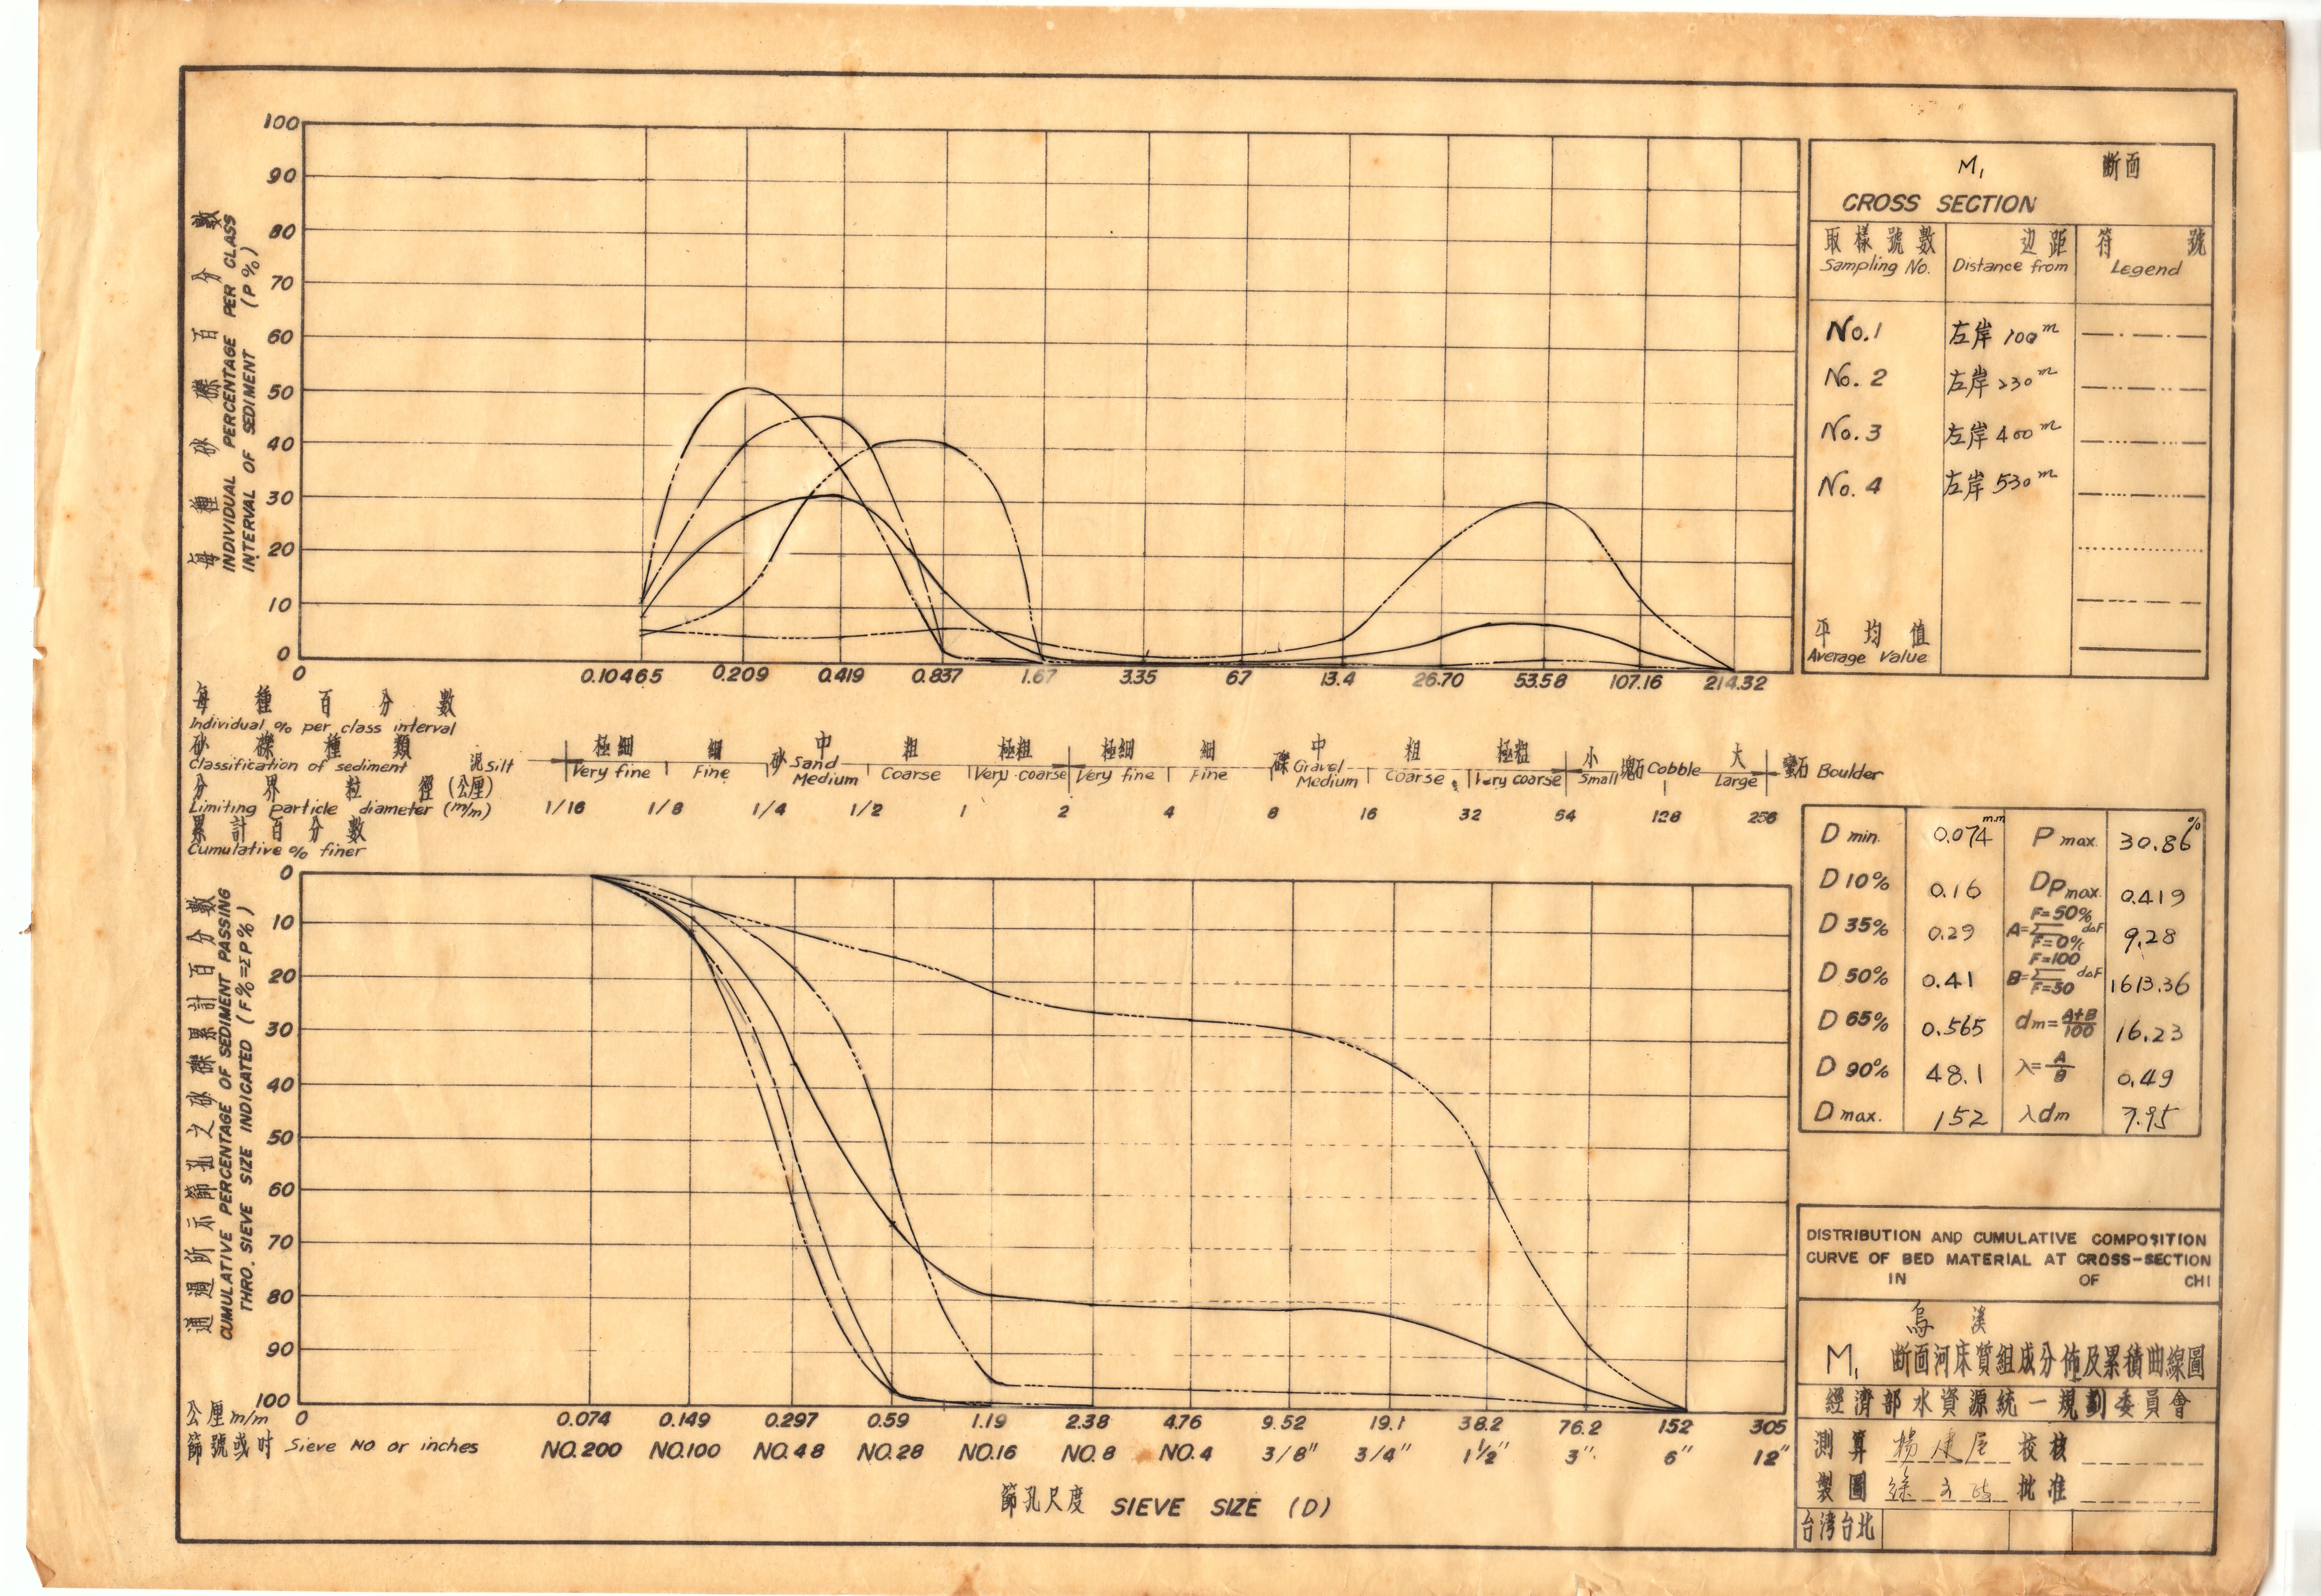 100
90
80
70
60
50
40
30
20
10
0
每種砂礫百分數
INDIVIDUAL PERCENTAGE PER CLASS
INTERVAL OF SEDIMENT (P %)
0 0.10465 0.209 0.419 0.837 1.67 3.35 6.7 13.4 26.70 53.58 107.16 214.32
每種百分數
Individual % per class interval
砂礫種類
Classification of sediment
泥 Silt 極細 Very fine 細 Fine 砂 Sand 中 Medium 粗 Coarse 極粗 Very coarse 極細 Very fine 細 Fine 礫 Gravel 中 Medium 粗 Coarse 極粗 Very coarse 小 Small 塊石 Cobble 大 Large 蠻石 Boulder
分界粒徑(公厘)
Limiting particle diameter (m/m) 1/16 1/8 1/4 1/2 1 2 4 8 16 32 64 128 256
累計百分數
Cumulative % finer
0
10
20
30
40
50
60
70
80
90
100
通過所示篩孔之砂礫累計百分數
CUMULATIVE PERCENTAGE OF SEDIMENT PASSING
THRO. SIEVE SIZE INDICATED (F%=ΣP%)
公厘 m/m 0 0.074 0.149 0.297 0.59 1.19 2.38 4.76 9.52 19.1 38.2 76.2 152 305
篩號或吋 Sieve NO or inches NO.200 NO.100 NO.48 NO.28 NO.16 NO.8 NO.4 3/8" 3/4" 1½" 3" 6" 12"
篩孔尺度 SIEVE SIZE (D)
M₁ 斷面
CROSS SECTION
取樣號數 边距 符號
Sampling No. Distance from Legend
No.1 左岸 100m
No.2 左岸 230m
No.3 左岸 400m
No.4 左岸 530m
平均值
Average Value
D min. 0.074 m.m P max. 30.86 %
D 10% 0.16 Dp max. 0.419
D 35% 0.29 A=Σ F=50% F=0% d△F 9.28
D 50% 0.41 B=Σ F=100 F=50 d△F 1613.36
D 65% 0.565 dm=A+B/100 16.23
D 90% 48.1 λ=A/B 0.49
D max. 152 λdm 7.95
DISTRIBUTION AND CUMULATIVE COMPOSITION
CURVE OF BED MATERIAL AT CROSS-SECTION
IN OF CHI
烏溪
M₁ 断面河床質組成分佈及累積曲線圖
經濟部水資源統一規劃委員會
測算 校核
製圖 批准
台湾台北